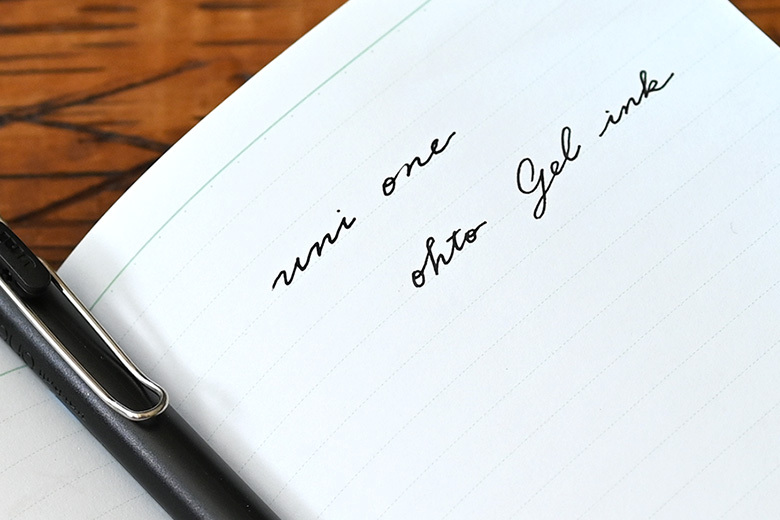 uni one
ohto Gel ink